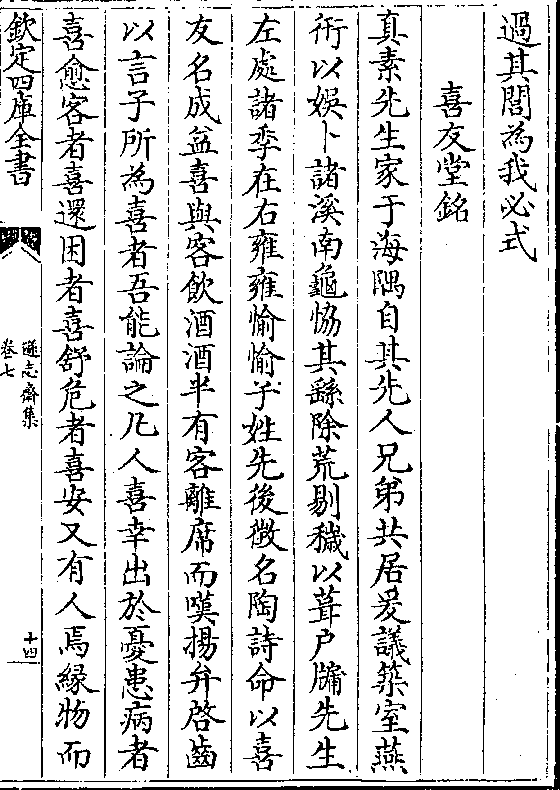 過其閭為我必式
喜友堂銘
真素先生家于海隅自其先人兄弟共居爰議築室燕
衎以娱卜諸溪南龜恊其繇除荒剔穢以葺户牖先生
左處諸季在右雍雍愉愉子姓先後徴名陶詩命以喜
友名成盆喜與客飲酒酒半有客離席而嘆揚弁啓齒
以言子所為喜者吾能論之凡人喜幸出於憂患病者
喜愈客者喜還困者喜舒危者喜安又有人焉縁物而
欽定四庫全書
遜志齋集
卷七
十四